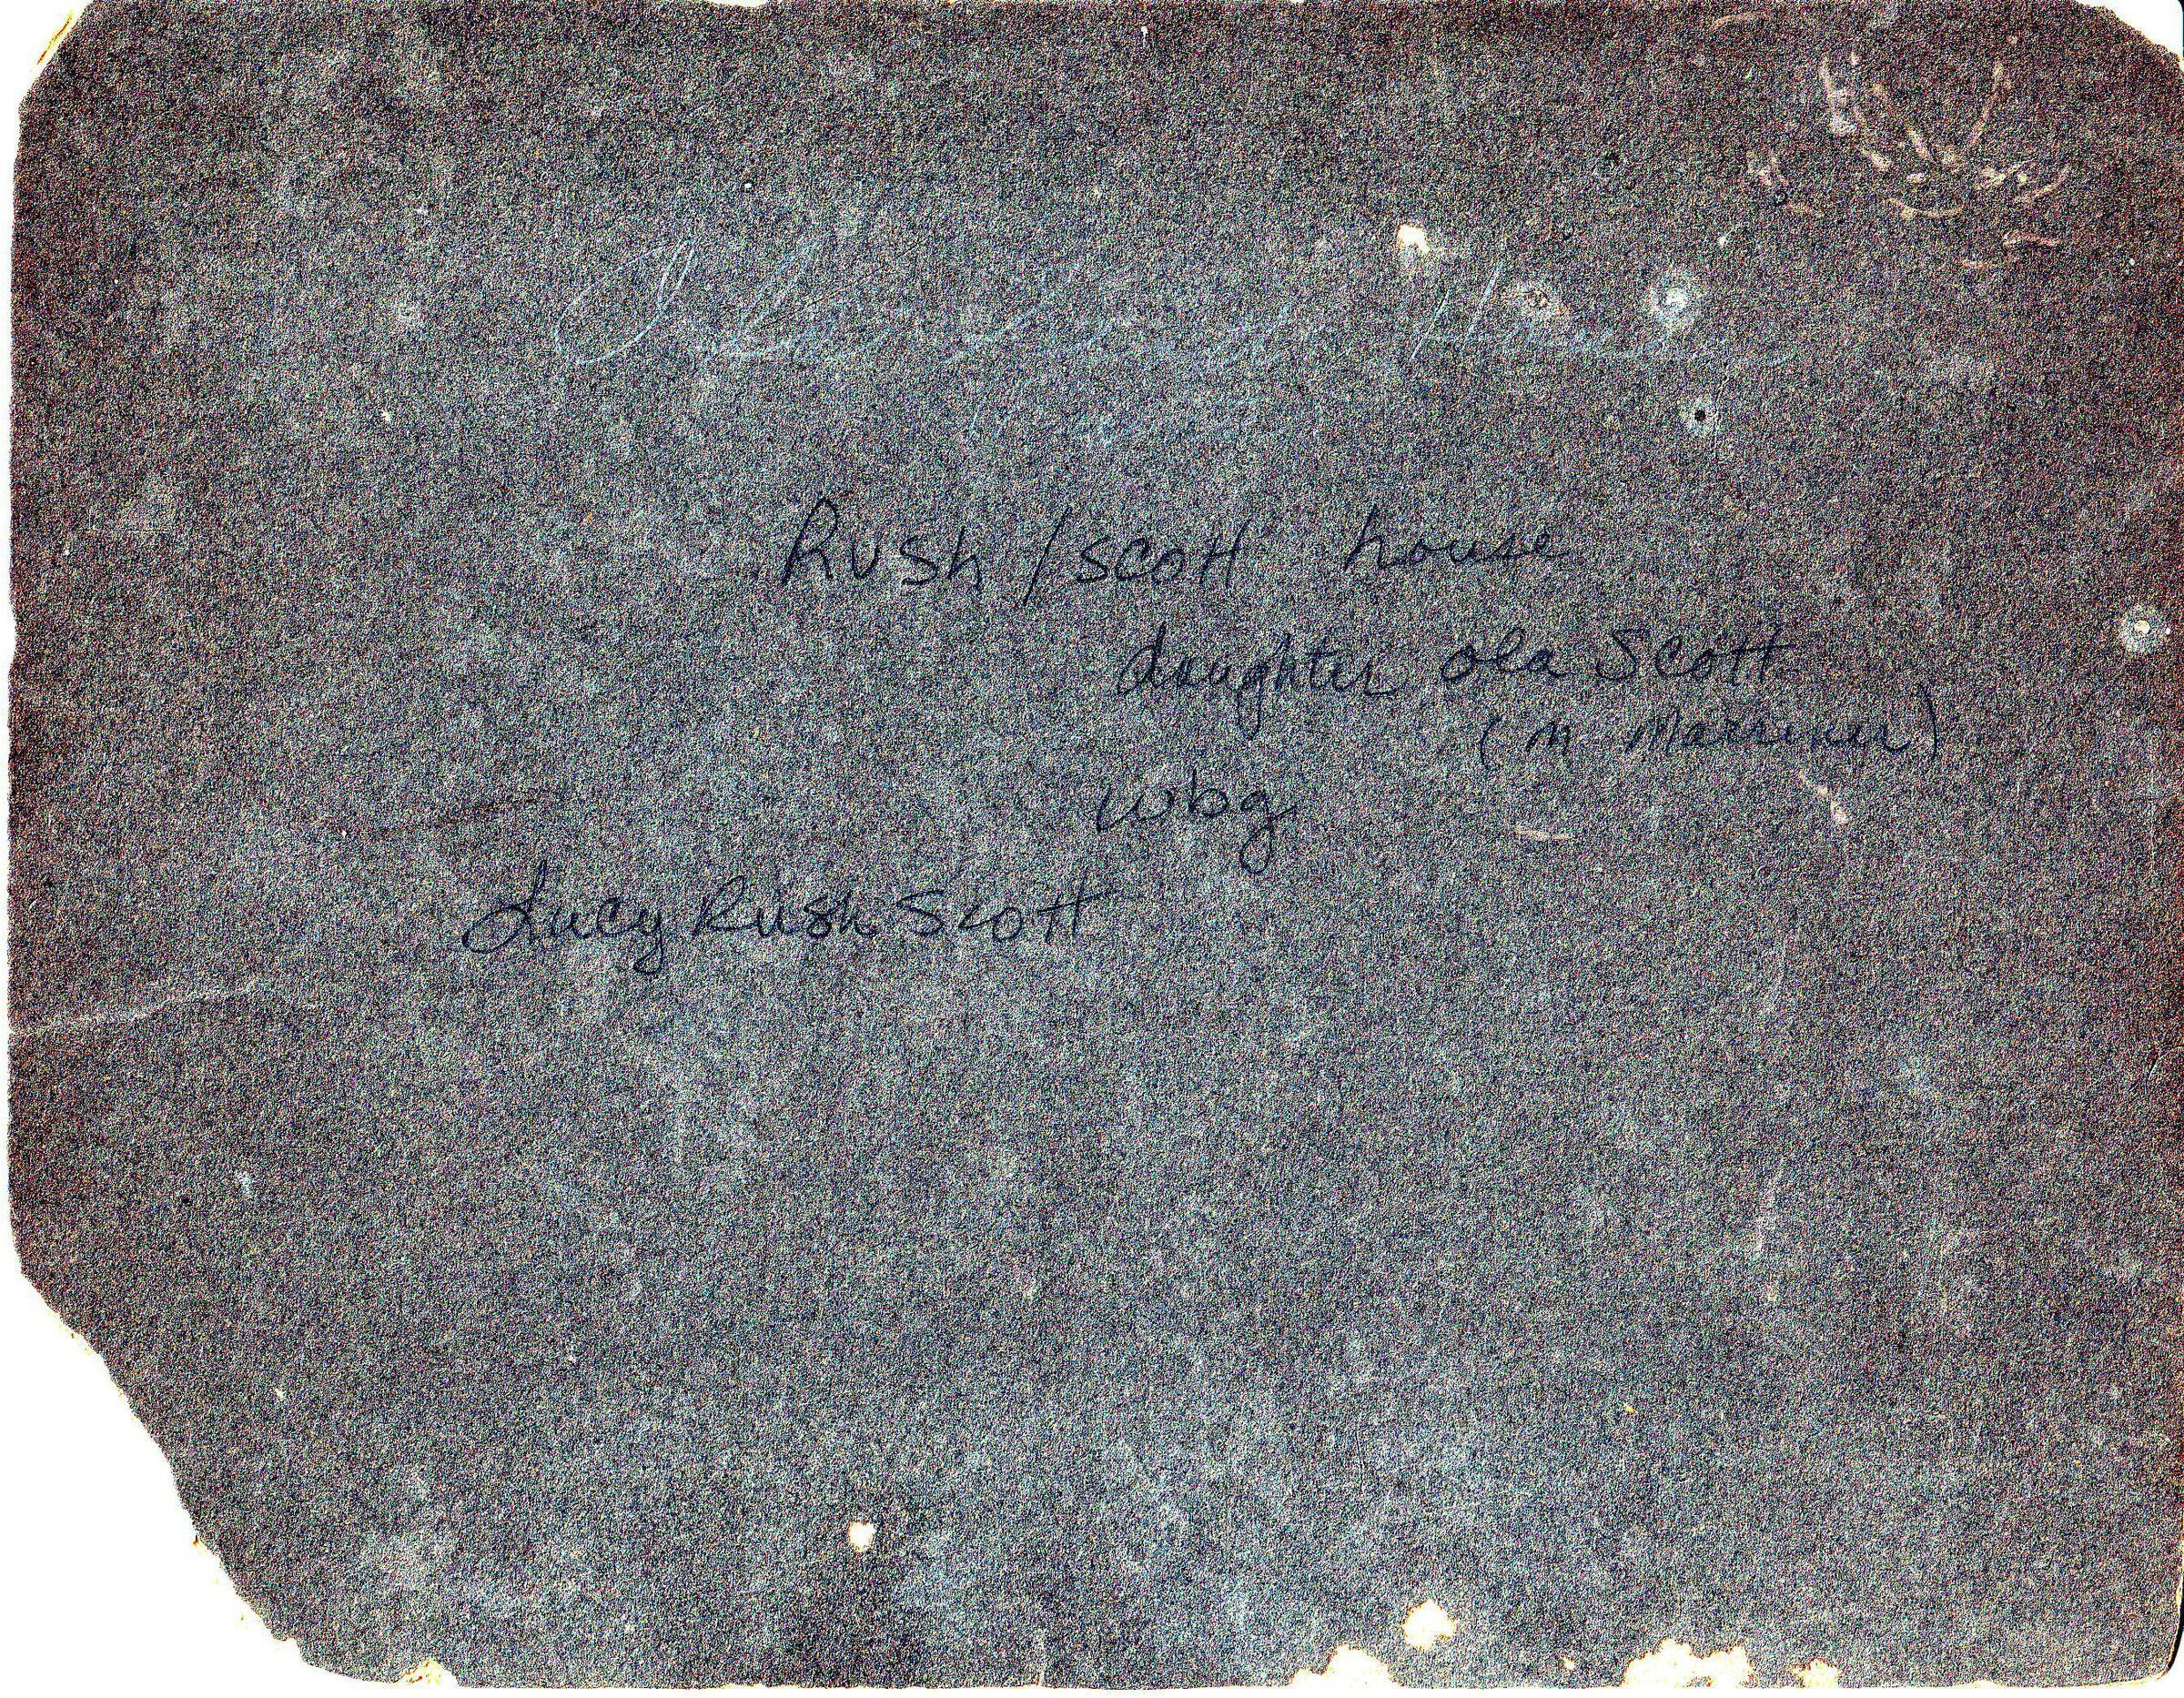 Rush / Scott house
daughter Ola Scott
(m Marriner)
wbg
Lucy Rush Scott